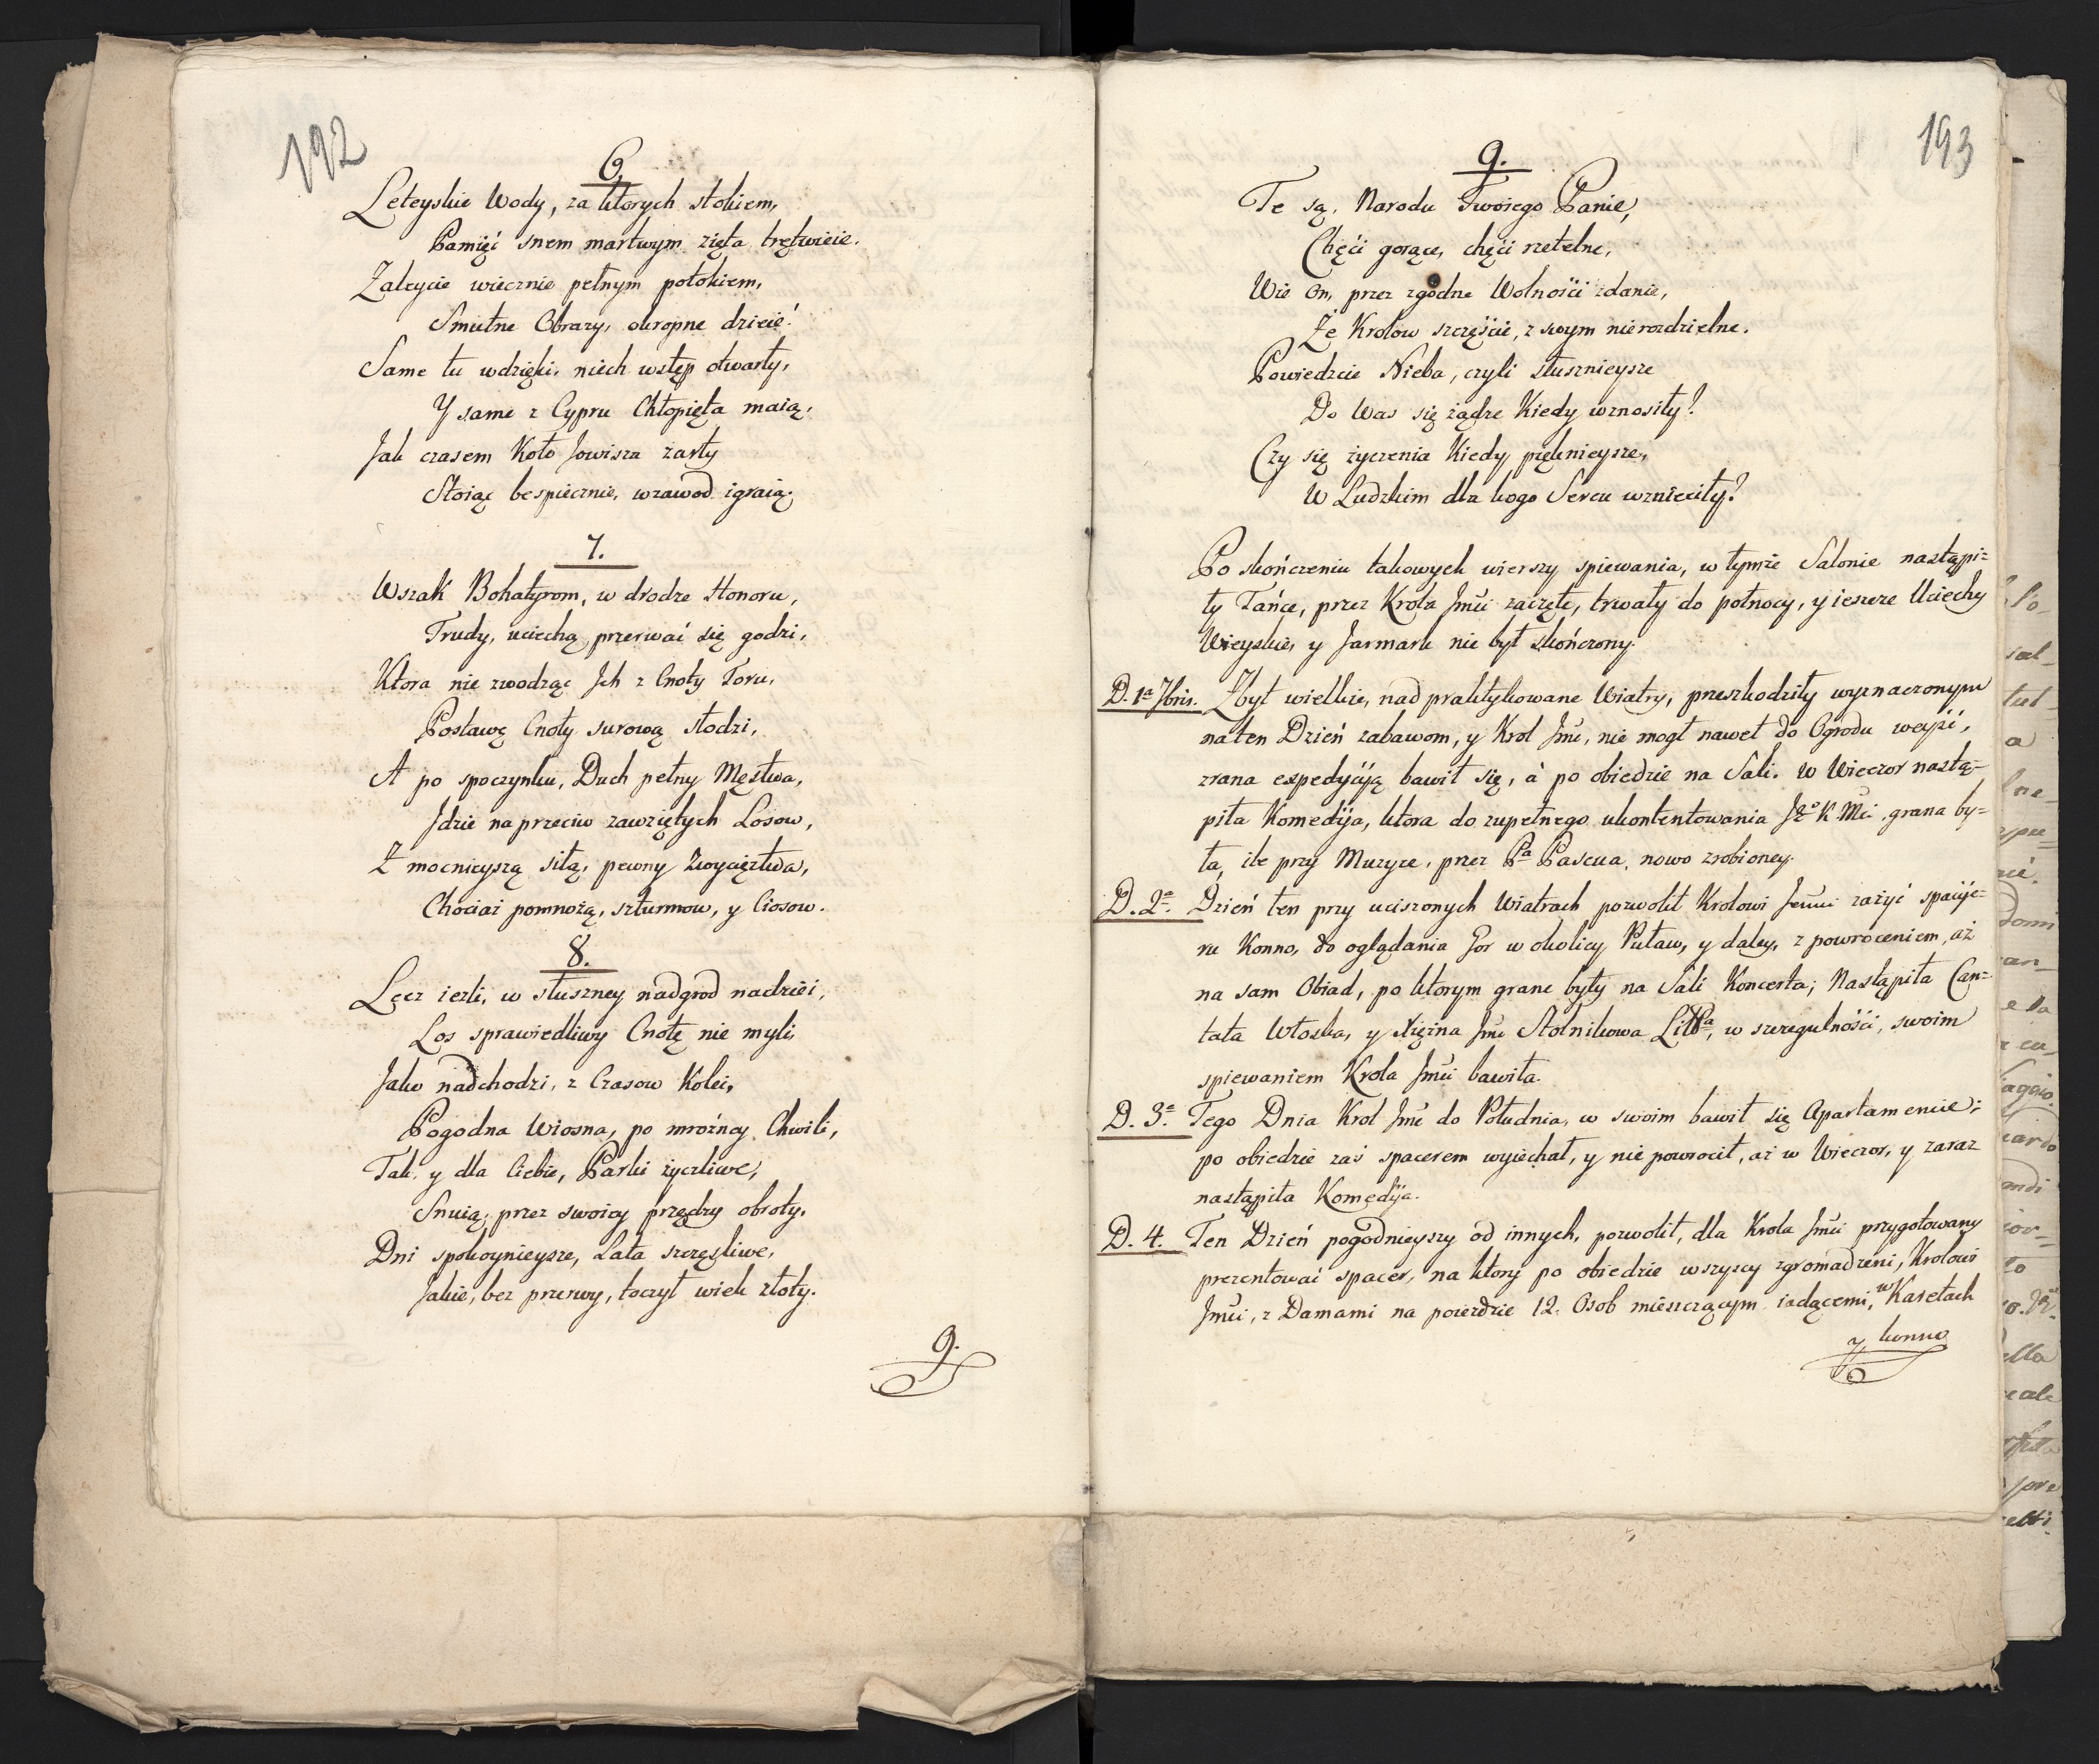 192
6.
Leteyskie Wody, za ktorych stokiem,
Pamięć snem martwym zięta trętwieie.
Zaleycie wiecznie pełnym potokiem,
Smutne Obrazy, okropne dzieie!
Same tu wdzięki, niech wstęp otwarty,
Y same z Cypru Chłopięta maią,
Jak czasem Koło Jowisza żarty
Stoiąc bespiecznie, wzawod igraią.
7.
Wszak Bohatyrom, w drodze Honoru,
Trudy, uciechą przerwać się godzi,
Ktora nie zwodząc Jch z Cnoty Toru,
Postawę Cnoty surową słodzi,
A po spoczynku, Duch pełny Męstwa,
Jdzie naprzeciw zawziętych Losow,
Z mocnieyszą siłą, pewny Zwycięztwa,
Chociaż pomnożą, szturmow, y Ciosow.
8.
Lecz iezli, w słuszney nadgrod nadziei,
Los sprawiedliwy Cnotę nie myli,
Jako nadchodzi, z Czasow Kolei,
Pogodna Wiosna, po mroźney Chwili,
Tak y dla Ciebie, Parki życzliwe,
Snuią, przez swoiey przędzy obroty,
Dni spokoynieysze, Lata szczęśliwe,
Jakie, bez przerwy, toczył wiek złoty.
9.
193
9.
Te są, Narodu Twoiego Panie,
Chęci gorące, chęci rzetelne,
Wie On, przez zgodne Wolności zdanie,
Że Krolow szczęście, z swym nierozdzielne.
Powiedzcie Nieba, czyli słusznieysze
Do Was się żądze Kiedy wznosiły?
Czy się życzenia Kiedy pięknieysze,
W Ludzkim dla kogo Sercu wznieciły?
Po skończeniu takowych wierszy spiewania, w tymże Salonie nastąpi=
ły Tańce, przez Krola Jmći zaczęte, trwały do połnocy, y ieszcze Uciechy
Wieyskie, y Jarmark nie był skończony.
D. 1ª 7bris. Zbyt wielkie, nad praktykowane Wiatry, przeszkodziły wyznaczonym
na ten Dzień zabawom, y Krol Jmć, nie mogł nawet do Ogrodu weyść,
zrana expedycyją bawił się, à po obiedzie na Sali. W Wieczor nastą=
piła Komedyja, ktora do zupełnego ukontentowania Jº K Mći grana by=
ła, ile przy Muzyce, przez Pª Pascua, nowo zrobioney.
D. 2ª. Dzień ten przy uciszonych Wiatrach pozwolił Krolowi Jmći zażyć spacyje=
ru Konno, do oglądania Gor w okolicy Puław, y daley, z powroceniem, aż
na sam Obiad, po ktorym grane były na Sali Koncerta; Nastąpiła Can=
tata Włoska, y Xiężna Jmć Stolnikowa Litt̃ª, w szczegulności, swoim
spiewaniem Krola Jmći bawiła.
D. 3ª Tego Dnia Krol Jmć do Południa, w swoim bawił się Apartamencie;
po obiedzie zaś spacerem wyiechał, y nie powrocił, aż w Wieczor, y zaraz
nastąpiła Komedyja.
D. 4. Ten Dzień pogodnieyszy od innych, pozwolił, dla Krola Jmći przygotowany
prezentować spacer, na ktory po obiedzie wszyscy zgromadzeni, Krolowi
Jmći, z Damami na poiezdzie 12. Osob mieszczącym iadącemi, w Karetach
y konno